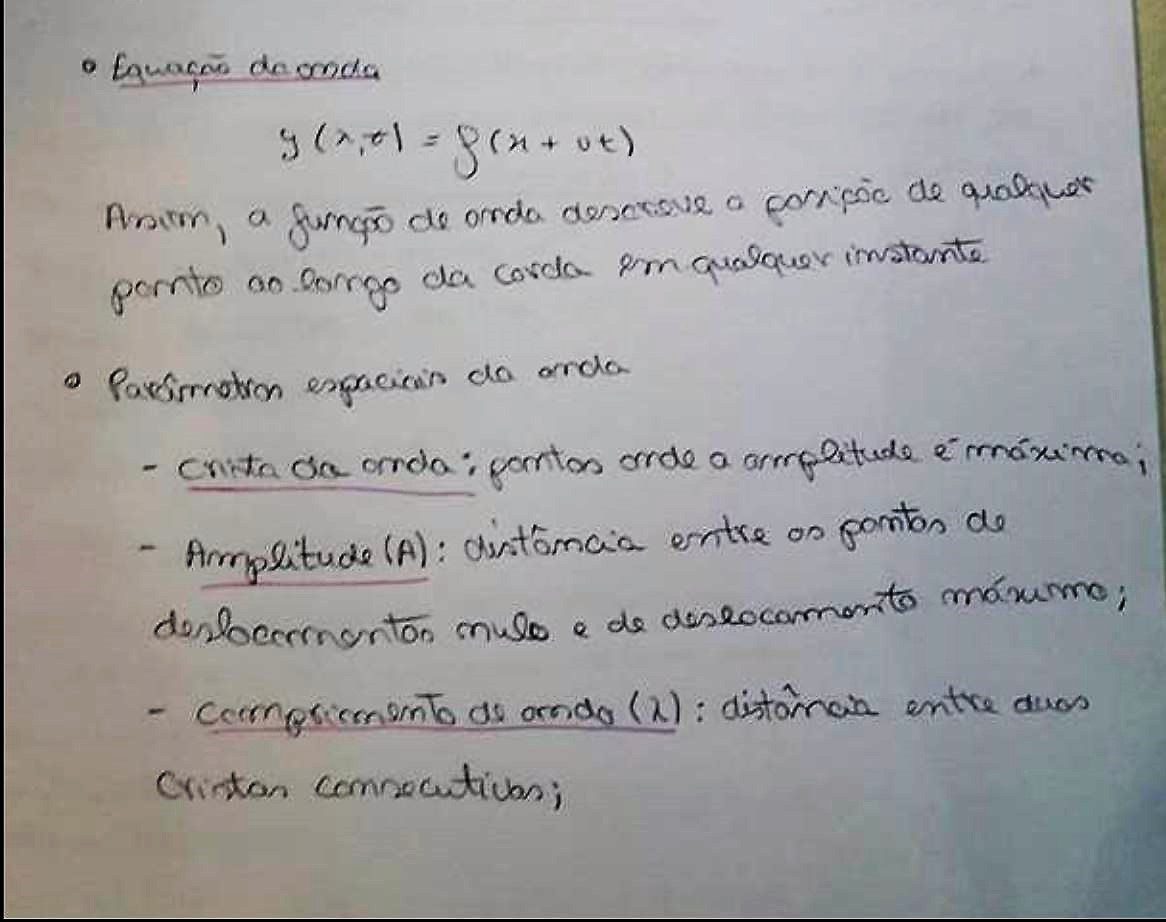 • Equação da onda
y(x,t) = f(x + vt)
Assim, a função de onda descreve a posição de qualquer
ponto ao longo da corda em qualquer instante
• Parâmetros espaciais da onda
- Crista da onda: pontos onde a amplitude é máxima;
- Amplitude (A): distância entre os pontos de
deslocamentos nulo e de deslocamento máximo;
- Comprimento de onda (λ): distância entre duas
cristas consecutivas;